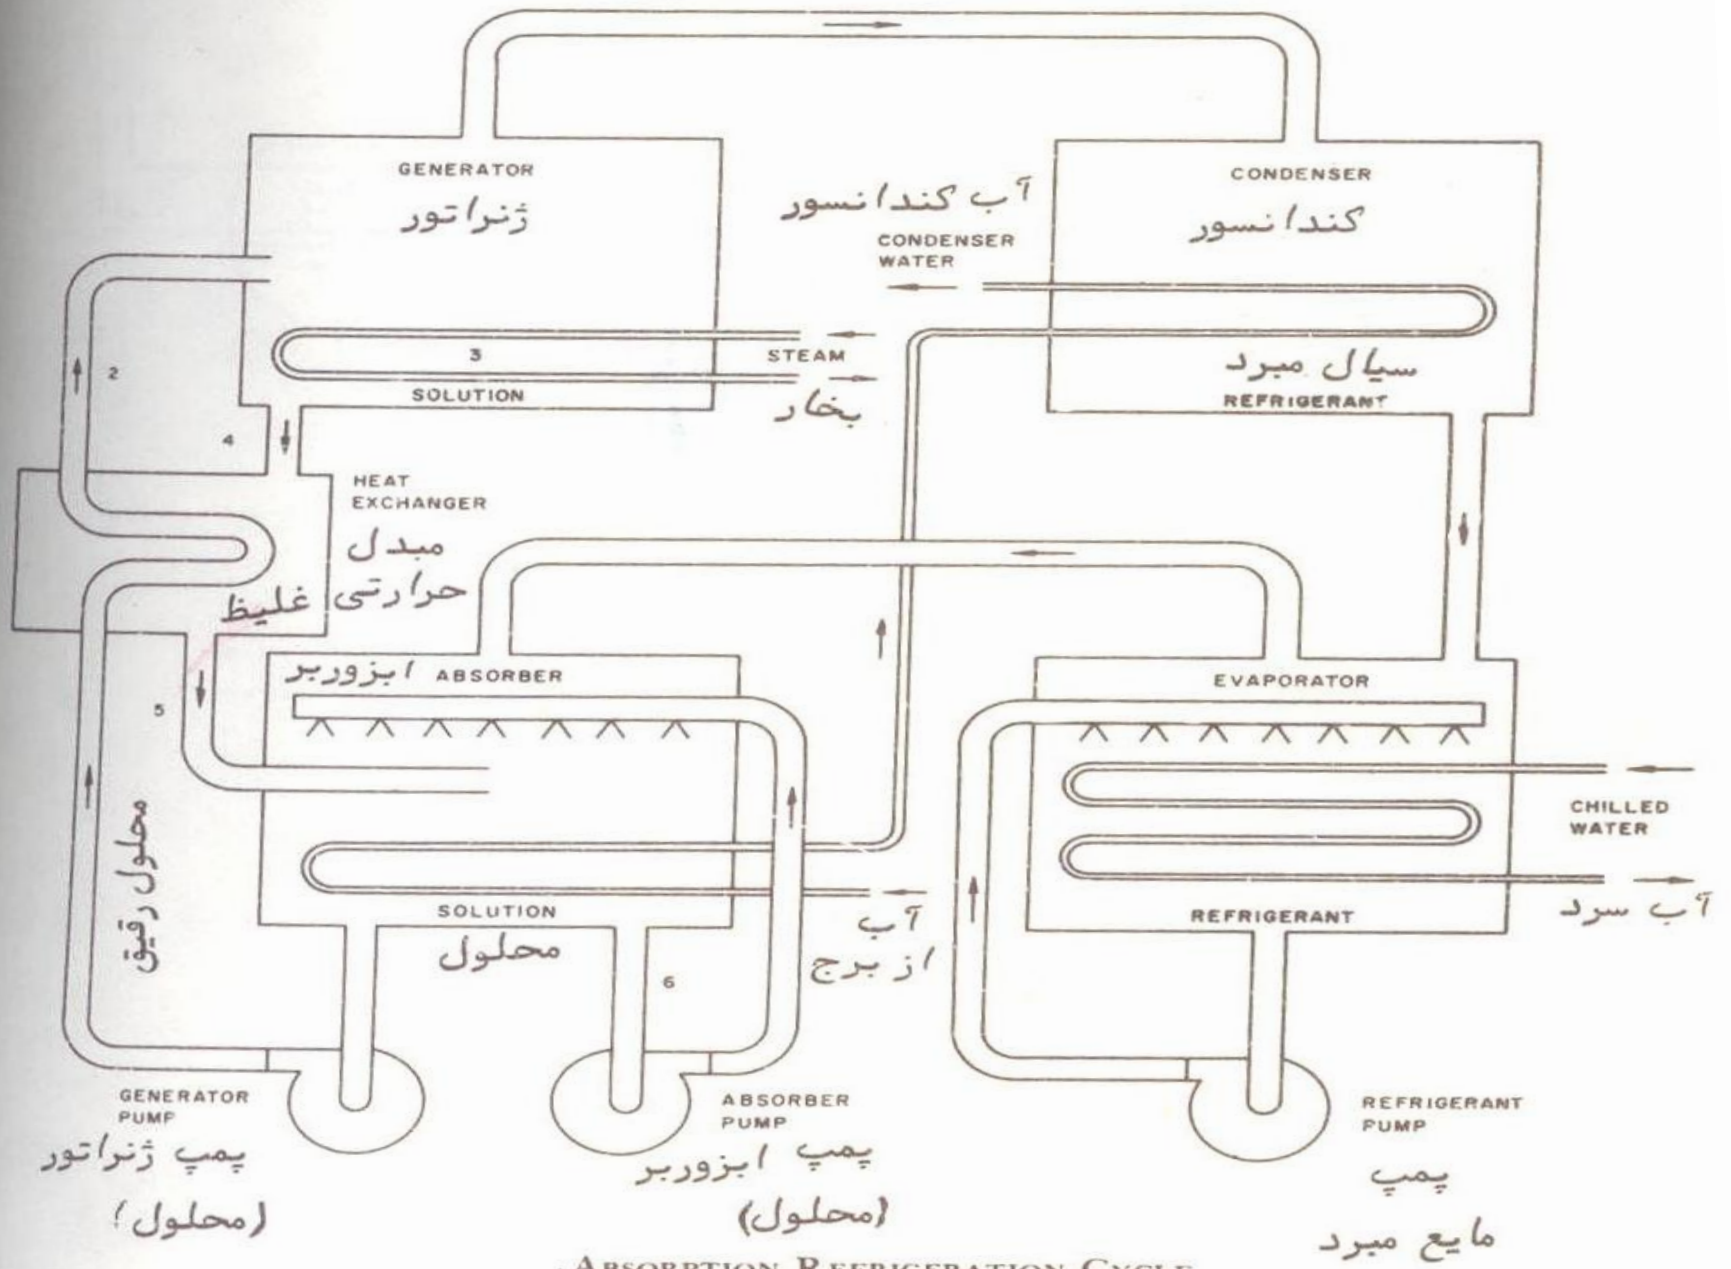 GENERATOR
ژنراتور
CONDENSER
کندانسور
آب کندانسور
CONDENSER
WATER
2
3
STEAM
بخار
SOLUTION
سیال مبرد
REFRIGERANT
4
HEAT
EXCHANGER
مبدل
حرارتی غلیظ
ابزوربر ABSORBER
EVAPORATOR
5
محلول رقیق
CHILLED
WATER
آب سرد
SOLUTION
محلول
آب
از برج
REFRIGERANT
6
GENERATOR
PUMP
پمپ ژنراتور
(محلول)
ABSORBER
PUMP
پمپ ابزوربر
(محلول)
REFRIGERANT
PUMP
پمپ
مایع مبرد
ABSORPTION REFRIGERATION CYCLE